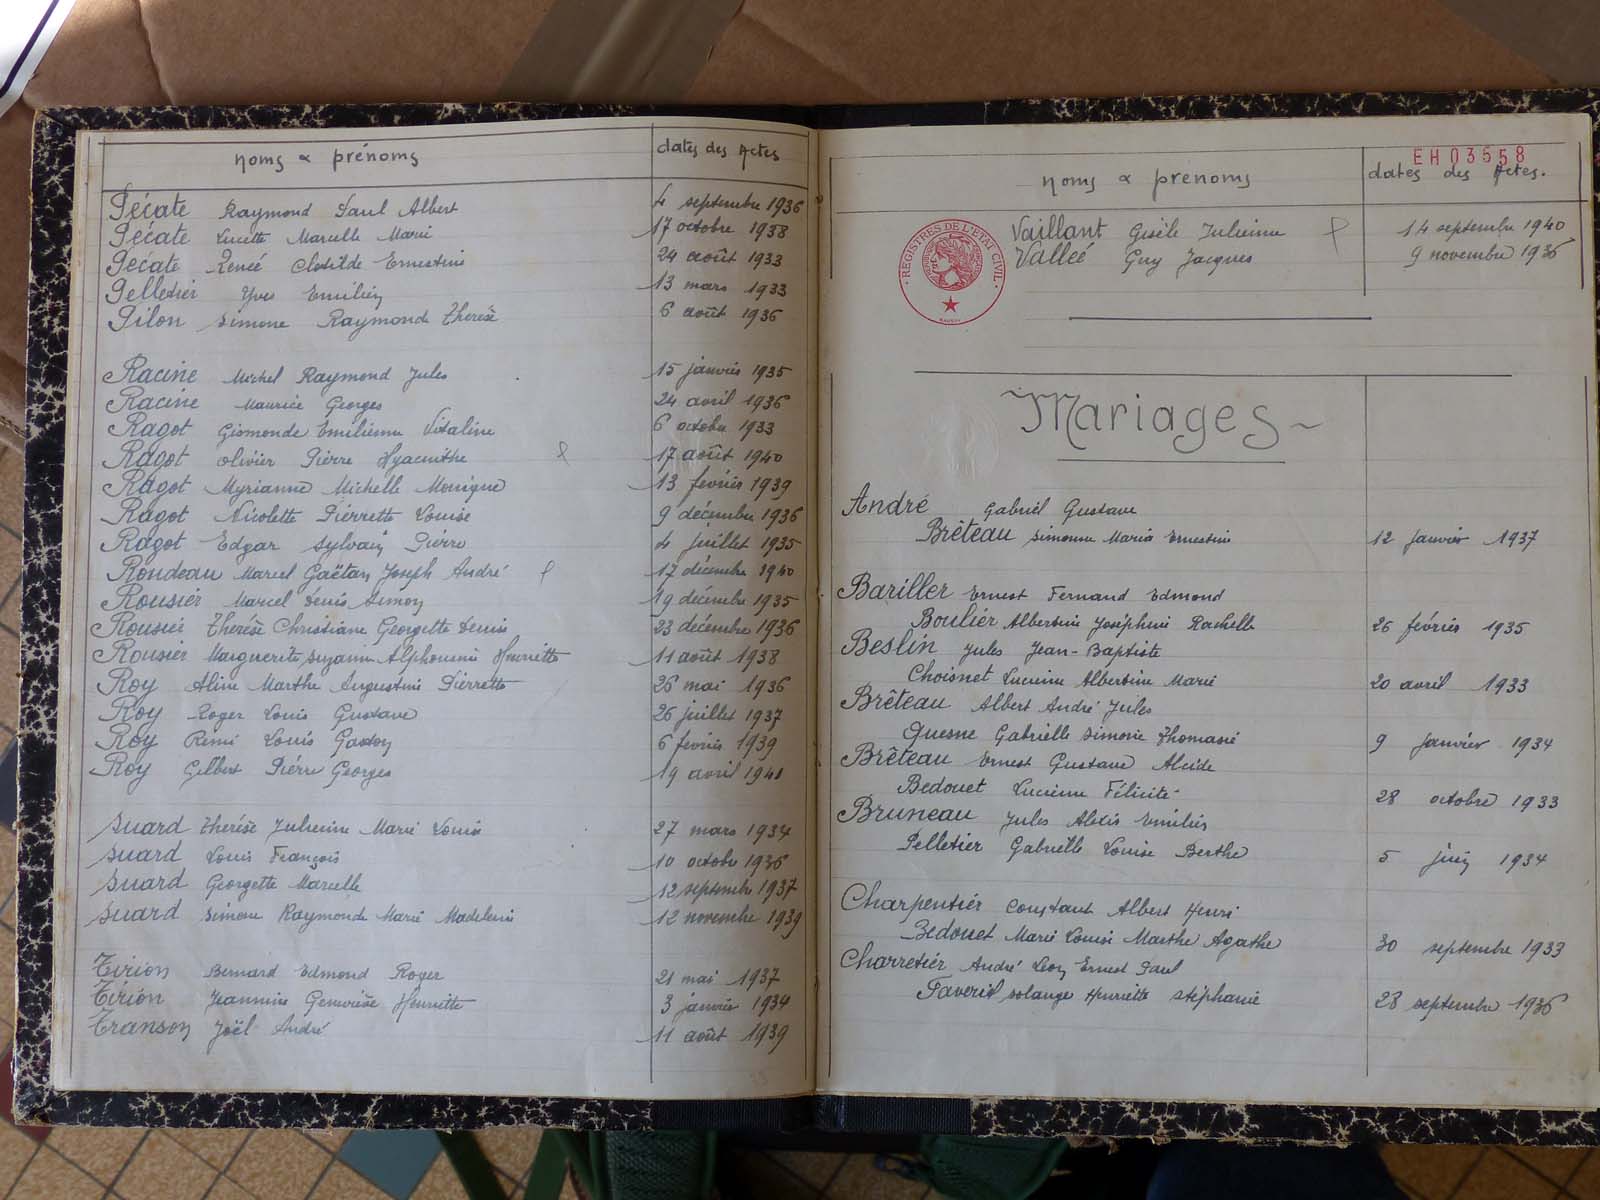 noms & prénoms dates des Actes
Pécate Raymond Paul Albert 4 septembre 1936
Pécate Lucette Marcelle Marie 17 octobre 1938
Pécate Renée Clotilde Ernestine 24 août 1933
Pelletier Yves Emilien 13 mars 1933
Pilon Simone Raymonde Therèse 6 août 1936
Racine Michel Raymond Jules 15 janvier 1935
Racine Maurice Georges 24 avril 1936
Ragot Gismonde Emilienne Vitaline 6 octobre 1933
Ragot Olivier Pierre Hyacinthe 17 août 1940
Ragot Myrianne Michelle Monique 13 février 1939
Ragot Nicolette Pierrette Louise 9 décembre 1936
Ragot Edgar Sylvain Pierre 4 juillet 1935
Rondeau Marcel Gaëtan Joseph André 17 décembre 1940
Rousier Marcel Denis Simon 19 décembre 1935
Rousier Therèse Christiane Georgette Denise 23 décembre 1936
Rousier Marguerite Suzanne Alphonsine Henriette 11 août 1938
Roy Aline Marthe Augustine Pierrette 26 mai 1936
Roy Roger Louis Gustave 26 juillet 1937
Roy Rémi Louis Gaston 6 février 1939
Roy Gilbert Pierre Georges 19 avril 1940
Suard Therèse Julienne Marie Louise 27 mars 1934
Suard Louis François 10 octobre 1936
Suard Georgette Marcelle 12 septembre 1937
Suard Simone Raymonde Marie Madeleine 12 novembre 1939
Tirion Bernard Edmond Roger 21 mai 1937
Tirion Jeannine Geneviève Henriette 3 janvier 1934
Transon Joël André 11 août 1939
EH03558
noms & prénoms dates des Actes.
REGISTRES DE L'ETAT CIVIL
Vaillant Gisèle Julienne 14 septembre 1940
Vallée Guy Jacques 9 novembre 1936
Mariages
André Gabriel Gustave
Brêteau Simonne Maria Ernestine 12 janvier 1937
Bariller Ernest Fernand Edmond
Boulier Albertine Joséphine Rachelle 26 février 1935
Beslin Jules Jean-Baptiste
Choisnet Lucienne Albertine Marie 20 avril 1933
Brêteau Albert André Jules
Quesne Gabrielle Simone Thomasie 9 janvier 1934
Brêteau Ernest Gustave Alcide
Bedouet Lucienne Félicité 28 octobre 1933
Bruneau Jules Alexis Emilien
Pelletier Gabrielle Louise Berthe 5 juin 1934
Charpentier Constant Albert Henri
Bedouet Marie Louise Marthe Agathe 30 septembre 1933
Charretier André Léon Ernest Paul
Taveril Solange Henriette Stéphanie 28 septembre 1936